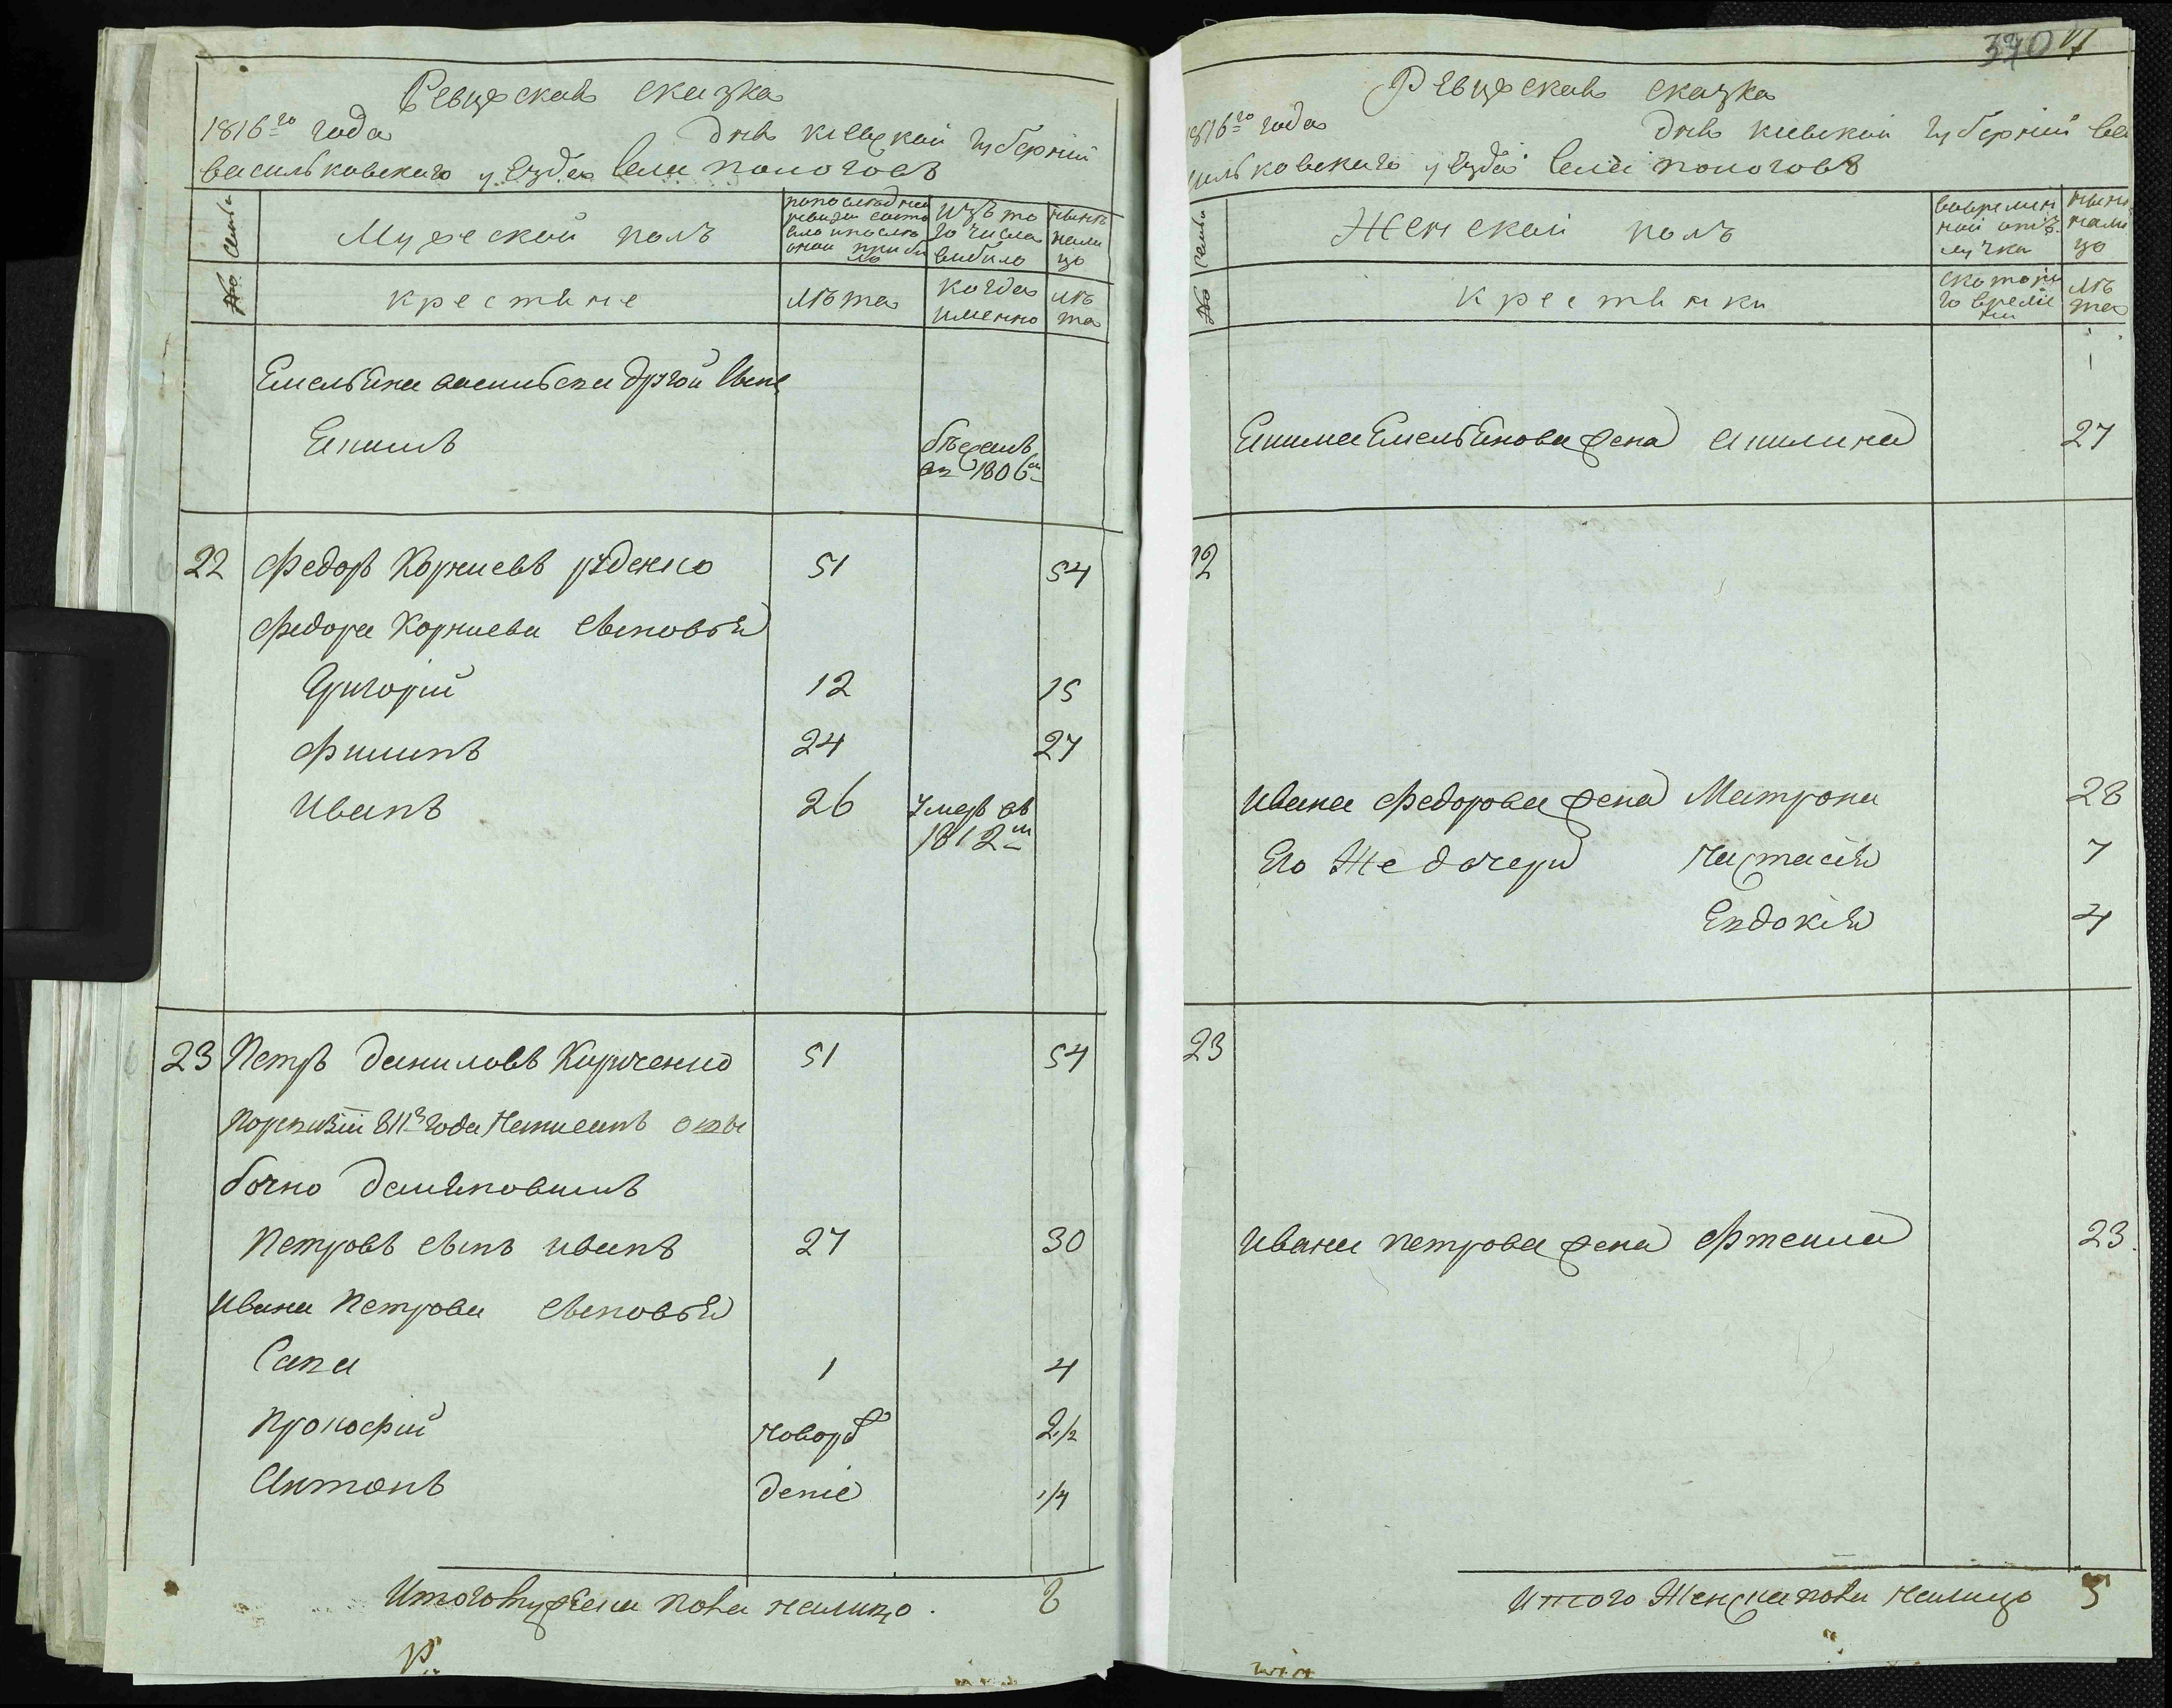 Ревижская сказка
1816го года дня киевской губернии
васильковского уезда села пологовъ
№ семьи
Мужеской полъ
по последней ревизии состояло и после оной прибыло
изъ того числа выбыло
нынѣ налицо
крестяне
лѣта
когда именно
лѣта
Емельяна васильева другой сынъ
Екимъ бѣжалъ
въ 1806м
22 Федоръ Корниевъ руденко 51 54
Федора Корниева сыновья
Григорій 12 15
Филипъ 24 27
Иванъ 26 умеръ въ
1812м
23 Петръ даниловъ Кириченко 51 54
поревизіи 811го года написанъ оши
бочно демяновимъ
Петровъ сынъ иванъ 27 30
Ивана Петрова сыновья
Сава 1 4
Прокофий новорож 2 1/2
Антонъ дение 1/4
Итого мужеска пола налицо 8
370
Ревижская сказка
1816го года дня киевской губернии ва
силковского уезда села пологовъ
№ семьи
Женской полъ
во временной отлучке
нынѣ налицо
крестянки
с которого времени
лѣта
Екима Емельянова жена акилина 27
22
Ивана Федорова жена Матрона 28
Его же дочери настасия 7
Евдокия 4
23
Ивана петрова жена Фтения 23
Итого Женска пола налицо 5